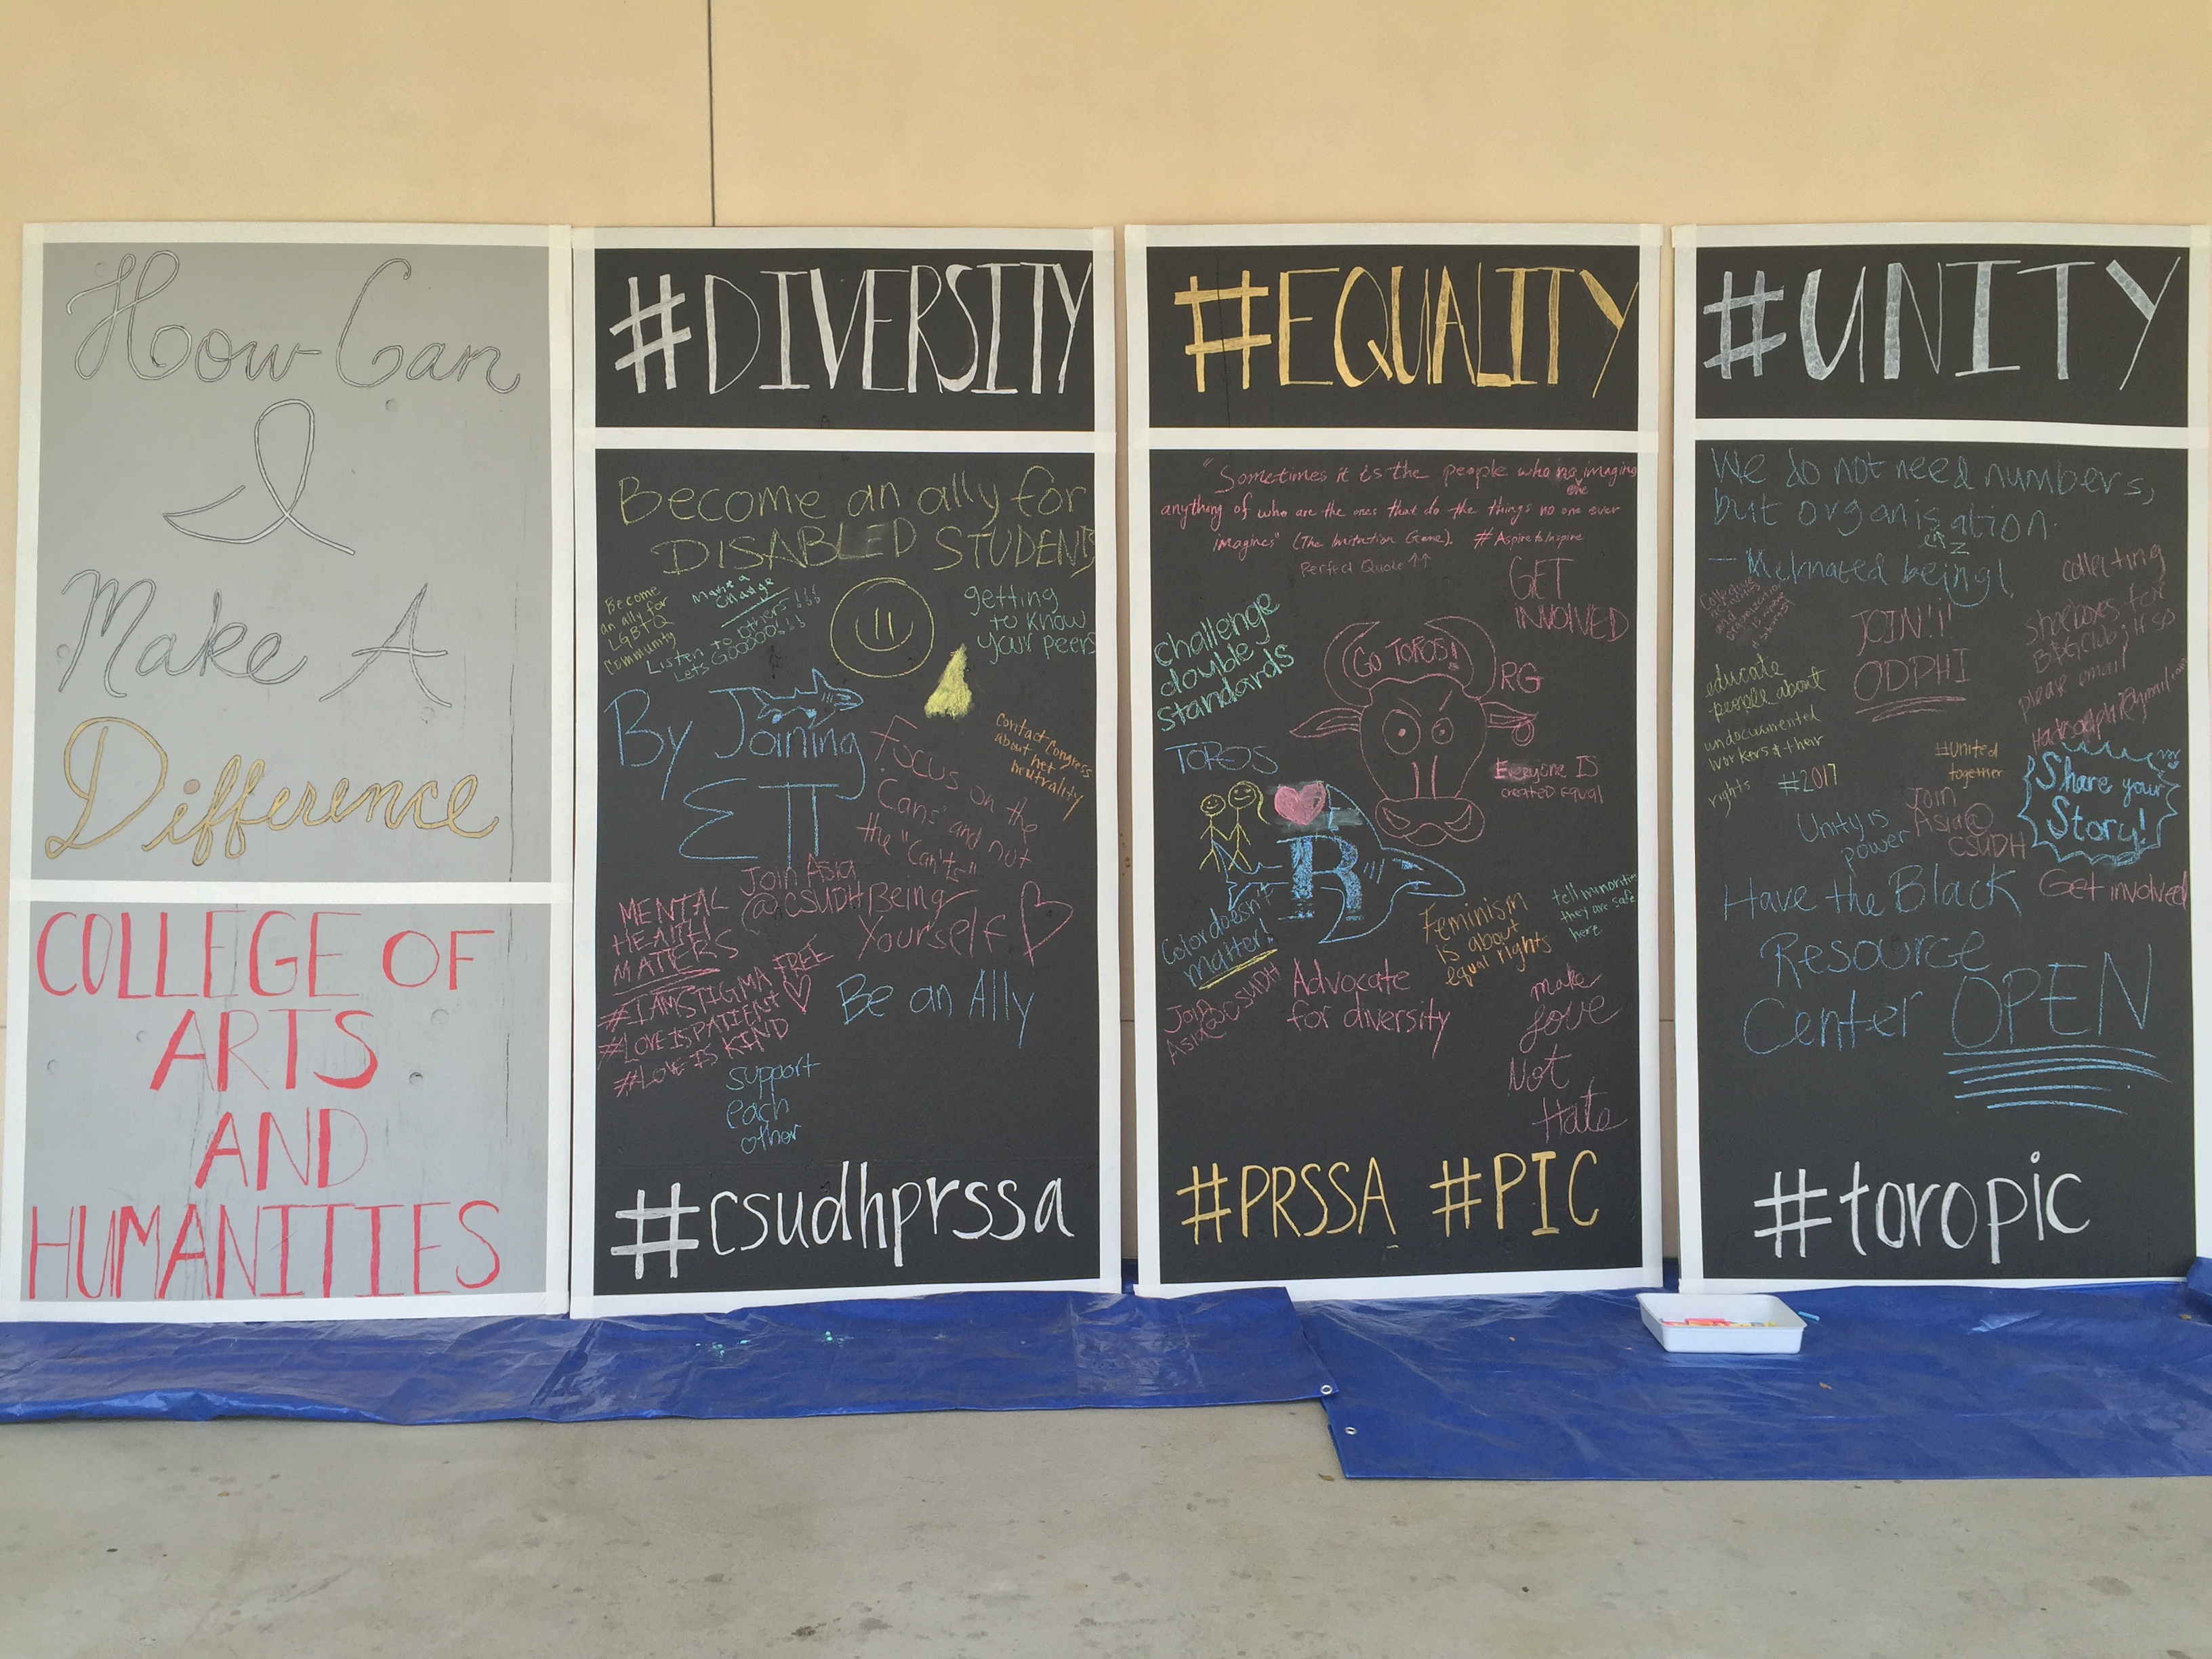 How Can
I
Make A
Difference
COLLEGE OF
ARTS
AND
HUMANITIES
#DIVERSITY
Become an ally for
DISABLED STUDENTS
Become
an ally for
LGBTQ
Community
Make a
Change
Listen to Others!!!
Lets GOOOO!!!
getting
to know
your peers
By Joining
ΣΠ
Focus on the
"Cans" and not
the "Can'ts"
contact Congress
about net
neutrality
Join Asia
@CSUDH
Being
Yourself
MENTAL
HEALTH
MATTERS
#IAMSTIGMAFREE
#LOVEISPATIENT
#LOVE IS KIND
Be an Ally
support
each
other
#csudhprssa
#EQUALITY
"Sometimes it is the people who no one imagines
anything of who are the ones that do the things no one ever
imagines" (The Imitation Game). #AspiretoInspire
Perfect Quote ↑↑
GET
INVOLVED
challenge
double
standards
GO TOROS!
RG
TOROS
Everyone IS
created Equal
R
Color doesn't
matter!
Feminism
is about
equal rights
tell minorities
they are safe
here
Join
Asia@CSUDH
Advocate
for diversity
make
love
Not
Hate
#PRSSA #PIC
#UNITY
We do not need numbers,
but organisation.
z
being
JOIN!!!
ODPHI
collecting
shoeboxes for
please email
educate
people about
undocumented
workers & their
rights
#2017
#united
together
Share your
Story!
Unity is
power
Join
Asia@
CSUDH
Get involved
Have the Black
Resource
Center OPEN
#toropic